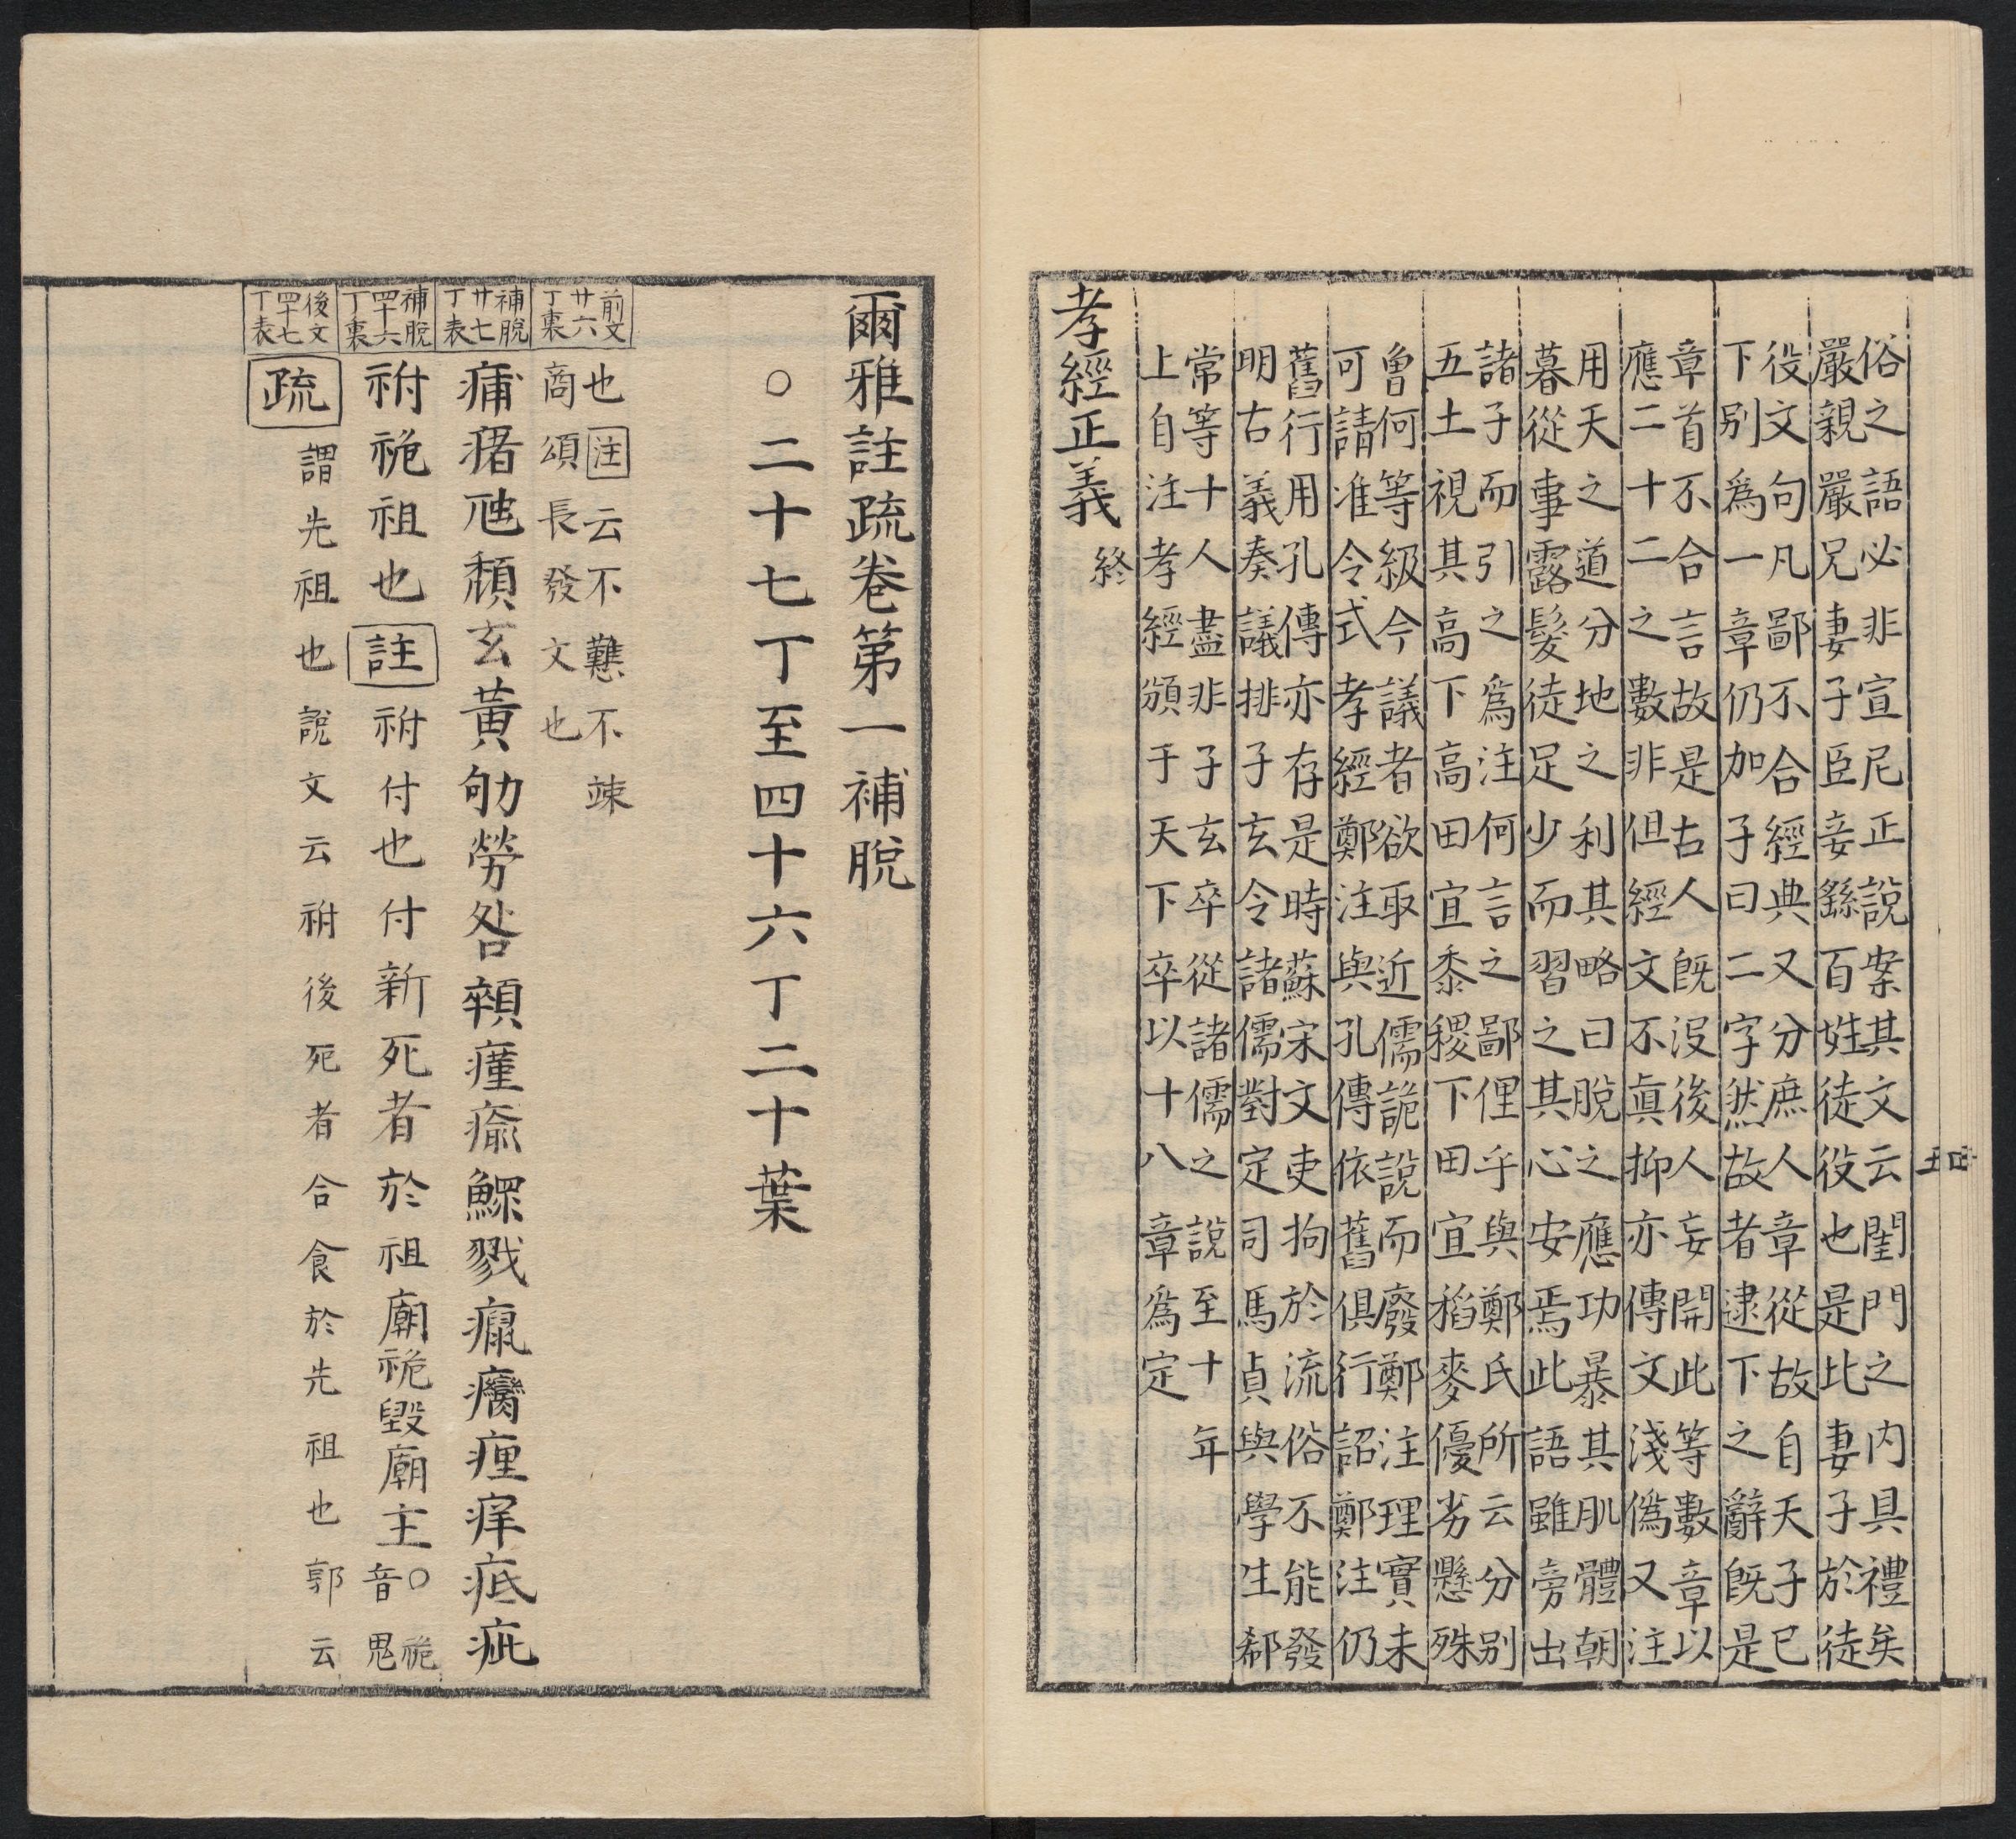 俗之語必非宣尼正說案其文云閨門之内具禮矣
嚴親嚴兄妻子臣妾繇百姓徒役也是比妻子於徒
役文句凡鄙不合經典又分庶人章從故自天子已
下别爲一章仍加子曰二字然故者逮下之辭旣是
章首不合言故是古人旣沒後人妄開此等數章以
應二十二之數非但經文不眞抑亦傳文淺僞又注
用天之道分地之利其略曰脫之應功暴其肌體朝
暮從事露髮徒足少而習之其心安焉此語雖旁出
諸子而引之爲注何言之鄙俚乎與鄭氏所云分别
五土視其高下高田宜黍稷下田宜稻麥優劣懸殊
曾何等級今議者欲取近儒詭說而廢鄭注理實未
可請准令式孝經鄭注與孔傳依舊俱行詔鄭注仍
舊行用孔傳亦存是時蘇宋文吏拘於流俗不能發
明古義奏議排子玄令諸儒對定司馬貞與學生郗
常等十人盡非子玄卒從諸儒之說至十年
上自注孝經頒于天下卒以十八章爲定
孝經正義 終
爾雅註疏卷第一補脫
○二十七丁至四十六丁二十葉
前文
廿六
丁裏
也注云不戁不竦
商頌長發文也
補脫
廿七
丁表
痡瘏虺頹玄黃劬勞咎顇瘽瘉鰥戮癙癵瘇痒疷疵
補脫
四十六
丁裏
祔祪祖也註祔付也付新死者於祖廟祪毀廟主○祪
音鬼
後文
四十七
丁表
疏謂先祖也說文云祔後死者合食於先祖也郭云